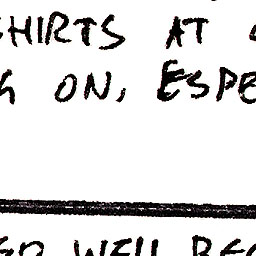 SHIRTS AT
ON, ESPE
WELL BEC